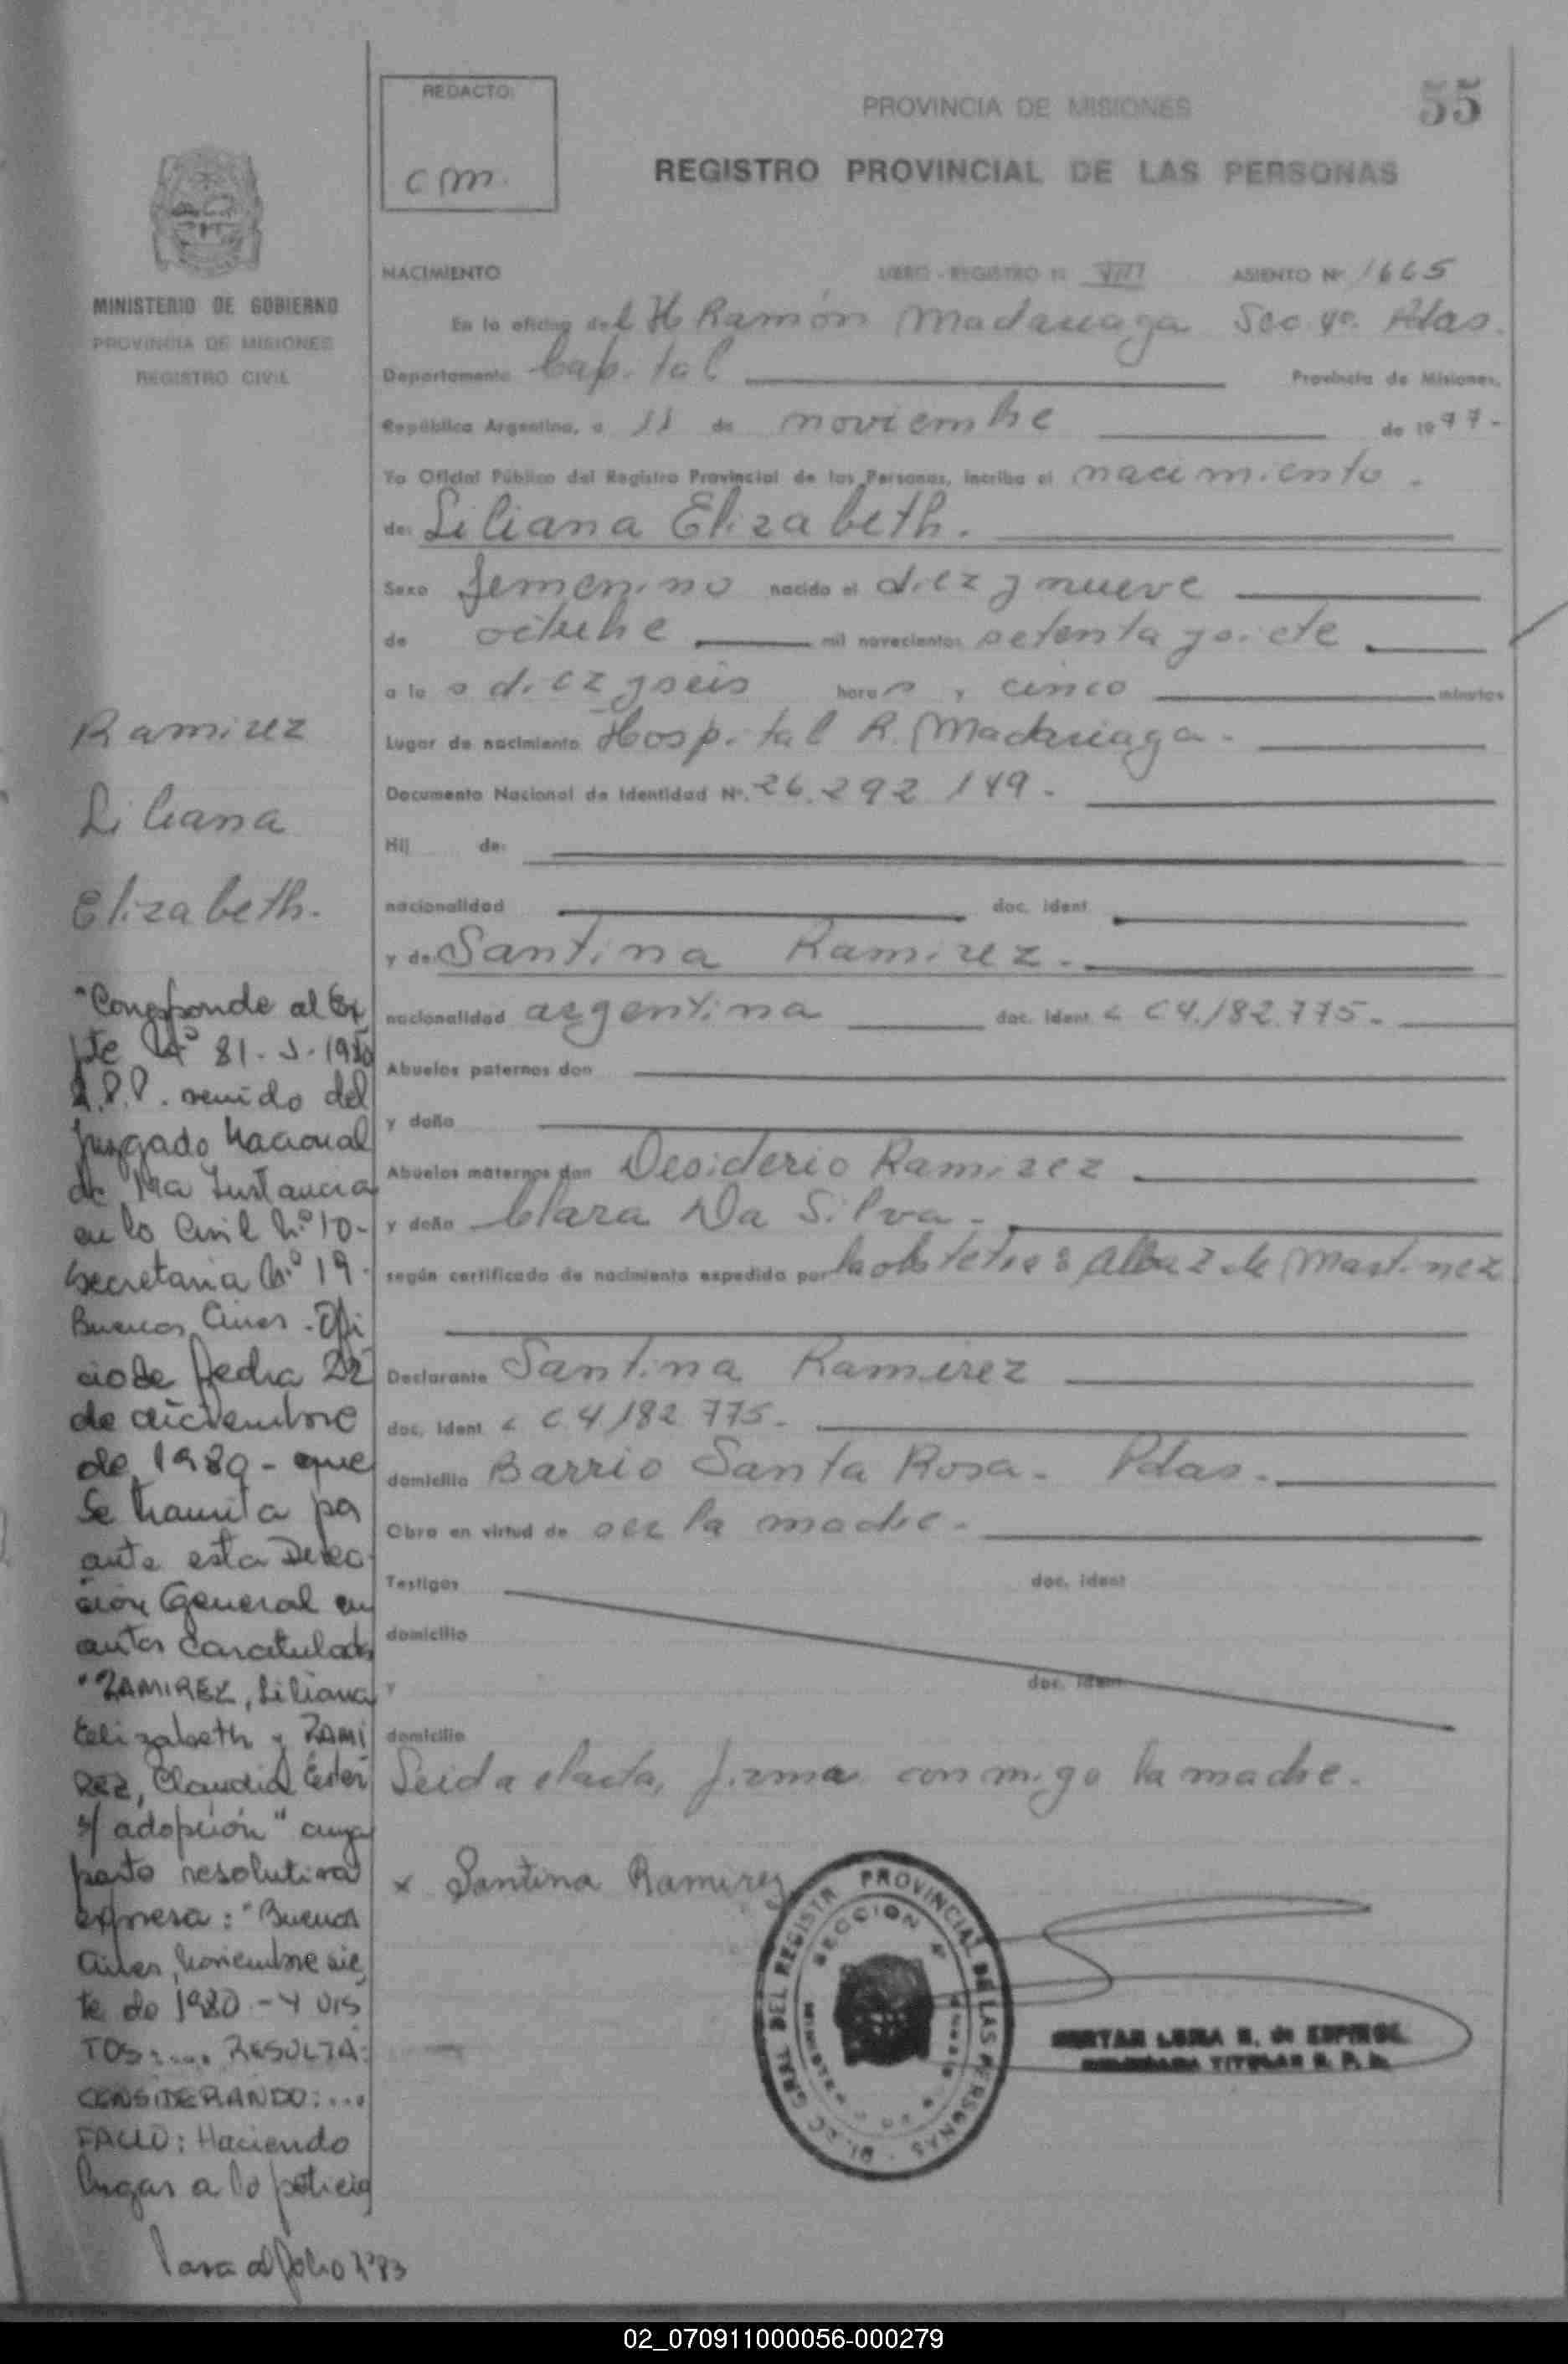 REDACTO:
cm.
PROVINCIA DE MISIONES
55
REGISTRO PROVINCIAL DE LAS PERSONAS
MINISTERIO DE GOBIERNO
PROVINCIA DE MISIONES
REGISTRO CIVIL
NACIMIENTO LIBRO - REGISTRO N VIII ASIENTO Nº 1665
En la oficina del H Ramón Madariaga Sec. 4a. Pdas.
Departamento Capital Provincia de Misiones,
República Argentina, a 11 de noviembre de 1977-
Yo Oficial Público del Registro Provincial de las Personas, incribo el nacimiento.
de: Liliana Elizabeth.
Sexo femenino nacido el diez y nueve
de octubre mil novecientos setenta y siete
a las diez y seis horas y cinco minutos
Lugar de nacimiento Hospital R. Madariaga.
Documento Nacional de Identidad Nº. 26.292 149.
Hij de:
nacionalidad doc. ident
y de: Santina Ramirez.
nacionalidad argentina doc. ident. C 4.182.775.
Abuelos paternos don
y doña
Abuelos maternos don Desiderio Ramirez
y doña Clara Da Silva.
según certificado de nacimiento expedido por la obstetra: Alba Z de Martinez
Declarante Santina Ramirez
doc. ident. C 4.182.775.
domicilio Barrio Santa Rosa. Pdas.
Obra en virtud de ser la madre.
Testigos doc. ident
domicilio
y doc. ident
domicilio
Leida el acta, firma conmigo la madre.
x Santina Ramirez
DIREC GRAL DEL REGISTR PROVINCIAL DE LAS PERSONAS
SECCION 4
MISIONES
TITULAR R. P. P.
Ramirez
Liliana
Elizabeth.
"Corresponde al Ex
pte Nº 81-J-1980
R.P.P. venido del
Juzgado Nacional
de 1ra Instancia
en lo Civil Nº 10-
Secretaria Nº 19.
Buenos Aires. Ofi
cio de fecha 22
de diciembre
de 1980 - que
se tramita por
ante esta Direc
ción General en
autos caratulados
"RAMIREZ, Liliana
Elizabeth y RAMI
REZ, Claudia Ester
s/ adopción" cuya
parte resolutiva
expresa: "Buenos
Aires, noviembre sie
te de 1980 - Y VIS
TOS:.... RESULTA:
CONSIDERANDO:...
FALLO: Haciendo
lugar a lo peticio
Pasa al folio Nº 83
02_070911000056-000279